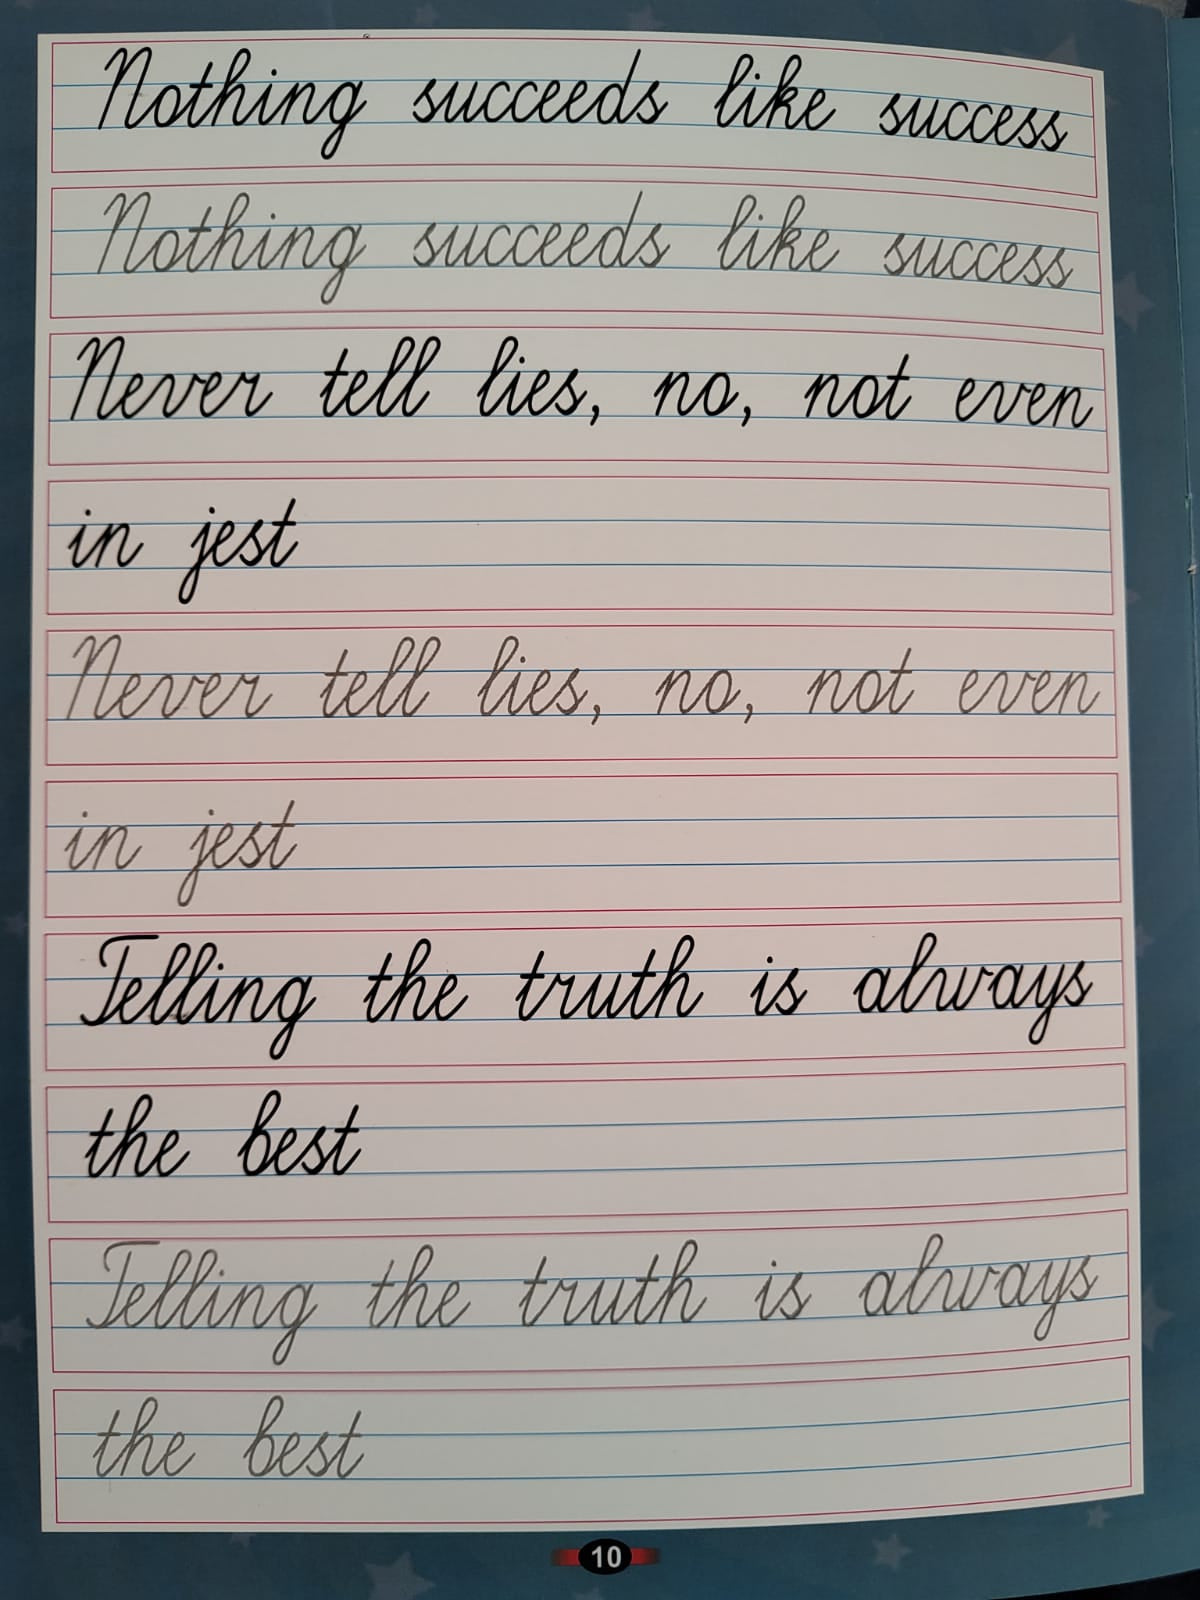 Nothing succeeds like success
Nothing succeeds like success
Never tell lies, no, not even
in jest
Never tell lies, no, not even
in jest
Telling the truth is always
the best
Telling the truth is always
the best
10